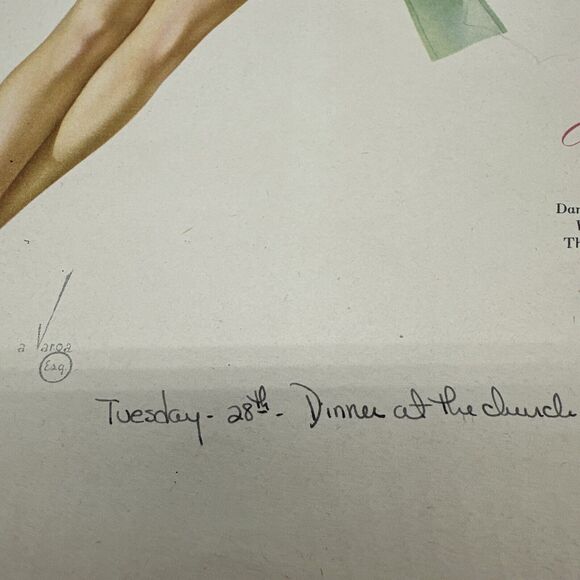 Dar
Th
a Varga
Esq.
Tuesday - 28th - Dinner at the church